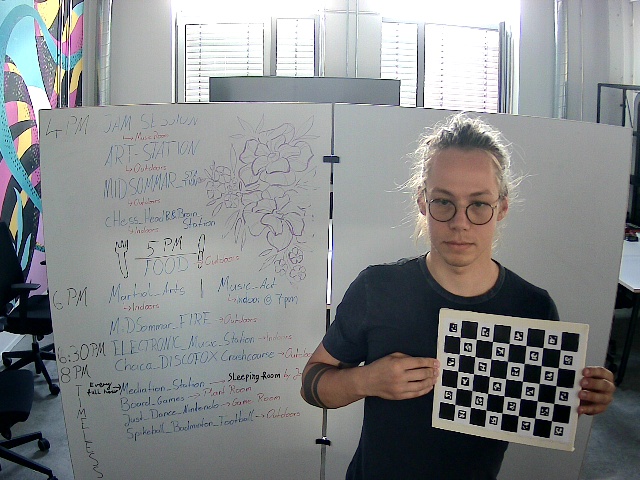 4 PM JAM SESSION
↳ Musicroom
ART-STATION
↳ Outdoors
MIDSOMMAR
↳ Outdoors
CHESS_Head&Brain
Station
↳ Indoors
5 PM
FOOD Outdoors
6 PM Martial_Arts | Music_Act
↳ Indoors ↳ indoor @ 7pm
MiDSommar_FIRE → Outdoors
6:30PM ELECTRONIC_Music_Station → Indoors
8PM DISCOFOX Crashcourse →
Every full hour Mediation_Station → Sleeping Room
Board_Games → Plant Room
Just_Dance_Nintendo → Game Room
Spikeball_Badminton_Football → Outdoors